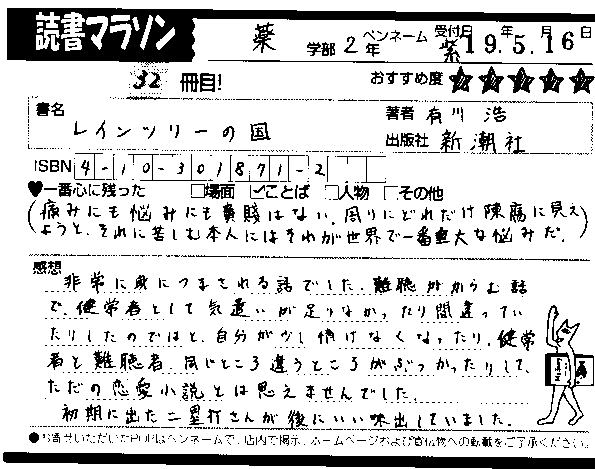 読書マラソン
薬 学部 2 年 ペンネーム 紫 受付日 19年5月16日
32 冊目! おすすめ度 ★★★★★
書名 レインツリーの国
著者 有川 浩
出版社 新潮社
ISBN 4-10-301871-2
♥一番心に残った □場面 ☑ことば □人物 □その他
(痛みにも悩みにも貴賤はない。周りにどれだけ陳腐に見え
ようと、それに苦しむ本人にはそれが世界で一番重大な悩みだ。)
感想
非常に身につまされる話でした。難聴がからむ話
で、健常者として気遣いが足りなかったり間違ってい
たりしたのではと、自分が少し情けなくなったり、健常
者と難聴者、同じところ違うところがぶつかったりして、
ただの恋愛小説とは思えませんでした。
初期に出た二塁打さんが後にいい味出していました。
●お寄せいただいたPOPはペンネームで、店内で掲示、ホームページおよび宣伝物への転載をご了承ください。